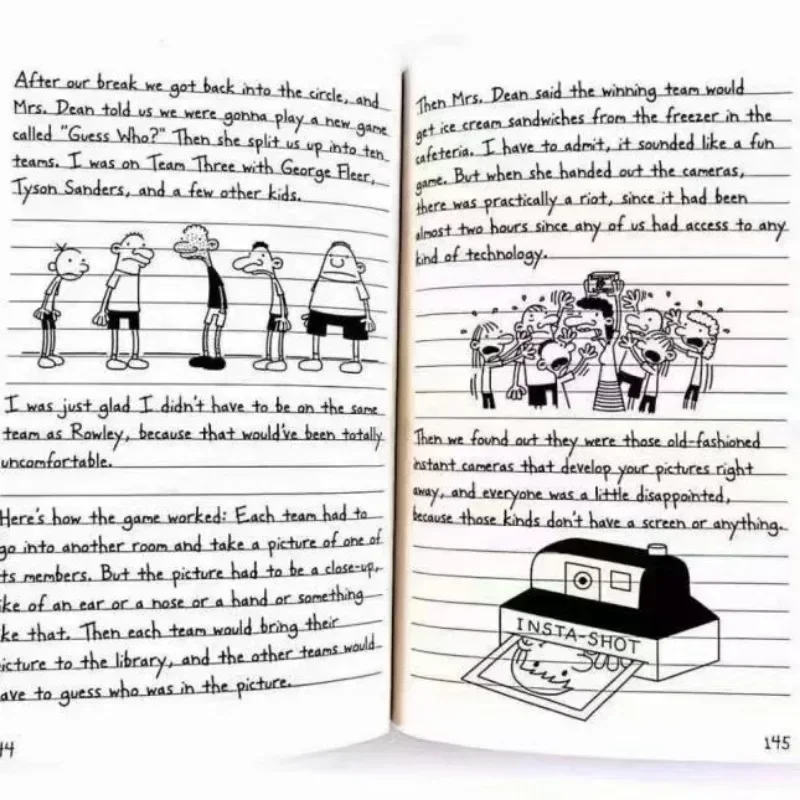 After our break we got back into the circle, and
Mrs. Dean told us we were gonna play a new game
called "Guess Who?" Then she split us up into ten
teams. I was on Team Three with George Fleer,
Tyson Sanders, and a few other kids.
I was just glad I didn't have to be on the same
team as Rowley, because that would've been totally
uncomfortable.
Here's how the game worked: Each team had to
go into another room and take a picture of one of
ts members. But the picture had to be a close-up,
ike of an ear or a nose or a hand or something
ike that. Then each team would bring their
icture to the library, and the other teams would
ave to guess who was in the picture.
44
Then Mrs. Dean said the winning team would
get ice cream sandwiches from the freezer in the
cafeteria. I have to admit, it sounded like a fun
game. But when she handed out the cameras,
there was practically a riot, since it had been
almost two hours since any of us had access to any
kind of technology.
Then we found out they were those old-fashioned
instant cameras that develop your pictures right
away, and everyone was a little disappointed,
because those kinds don't have a screen or anything.
INSTA-SHOT
145